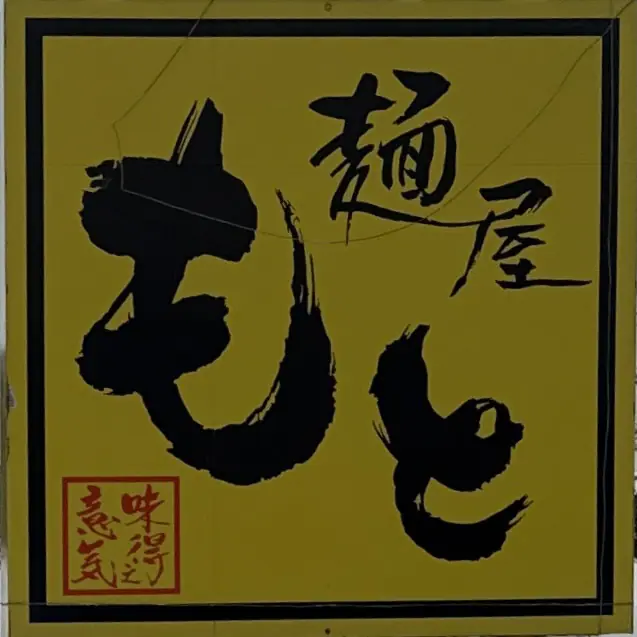 麺屋
もと
味得之
意気